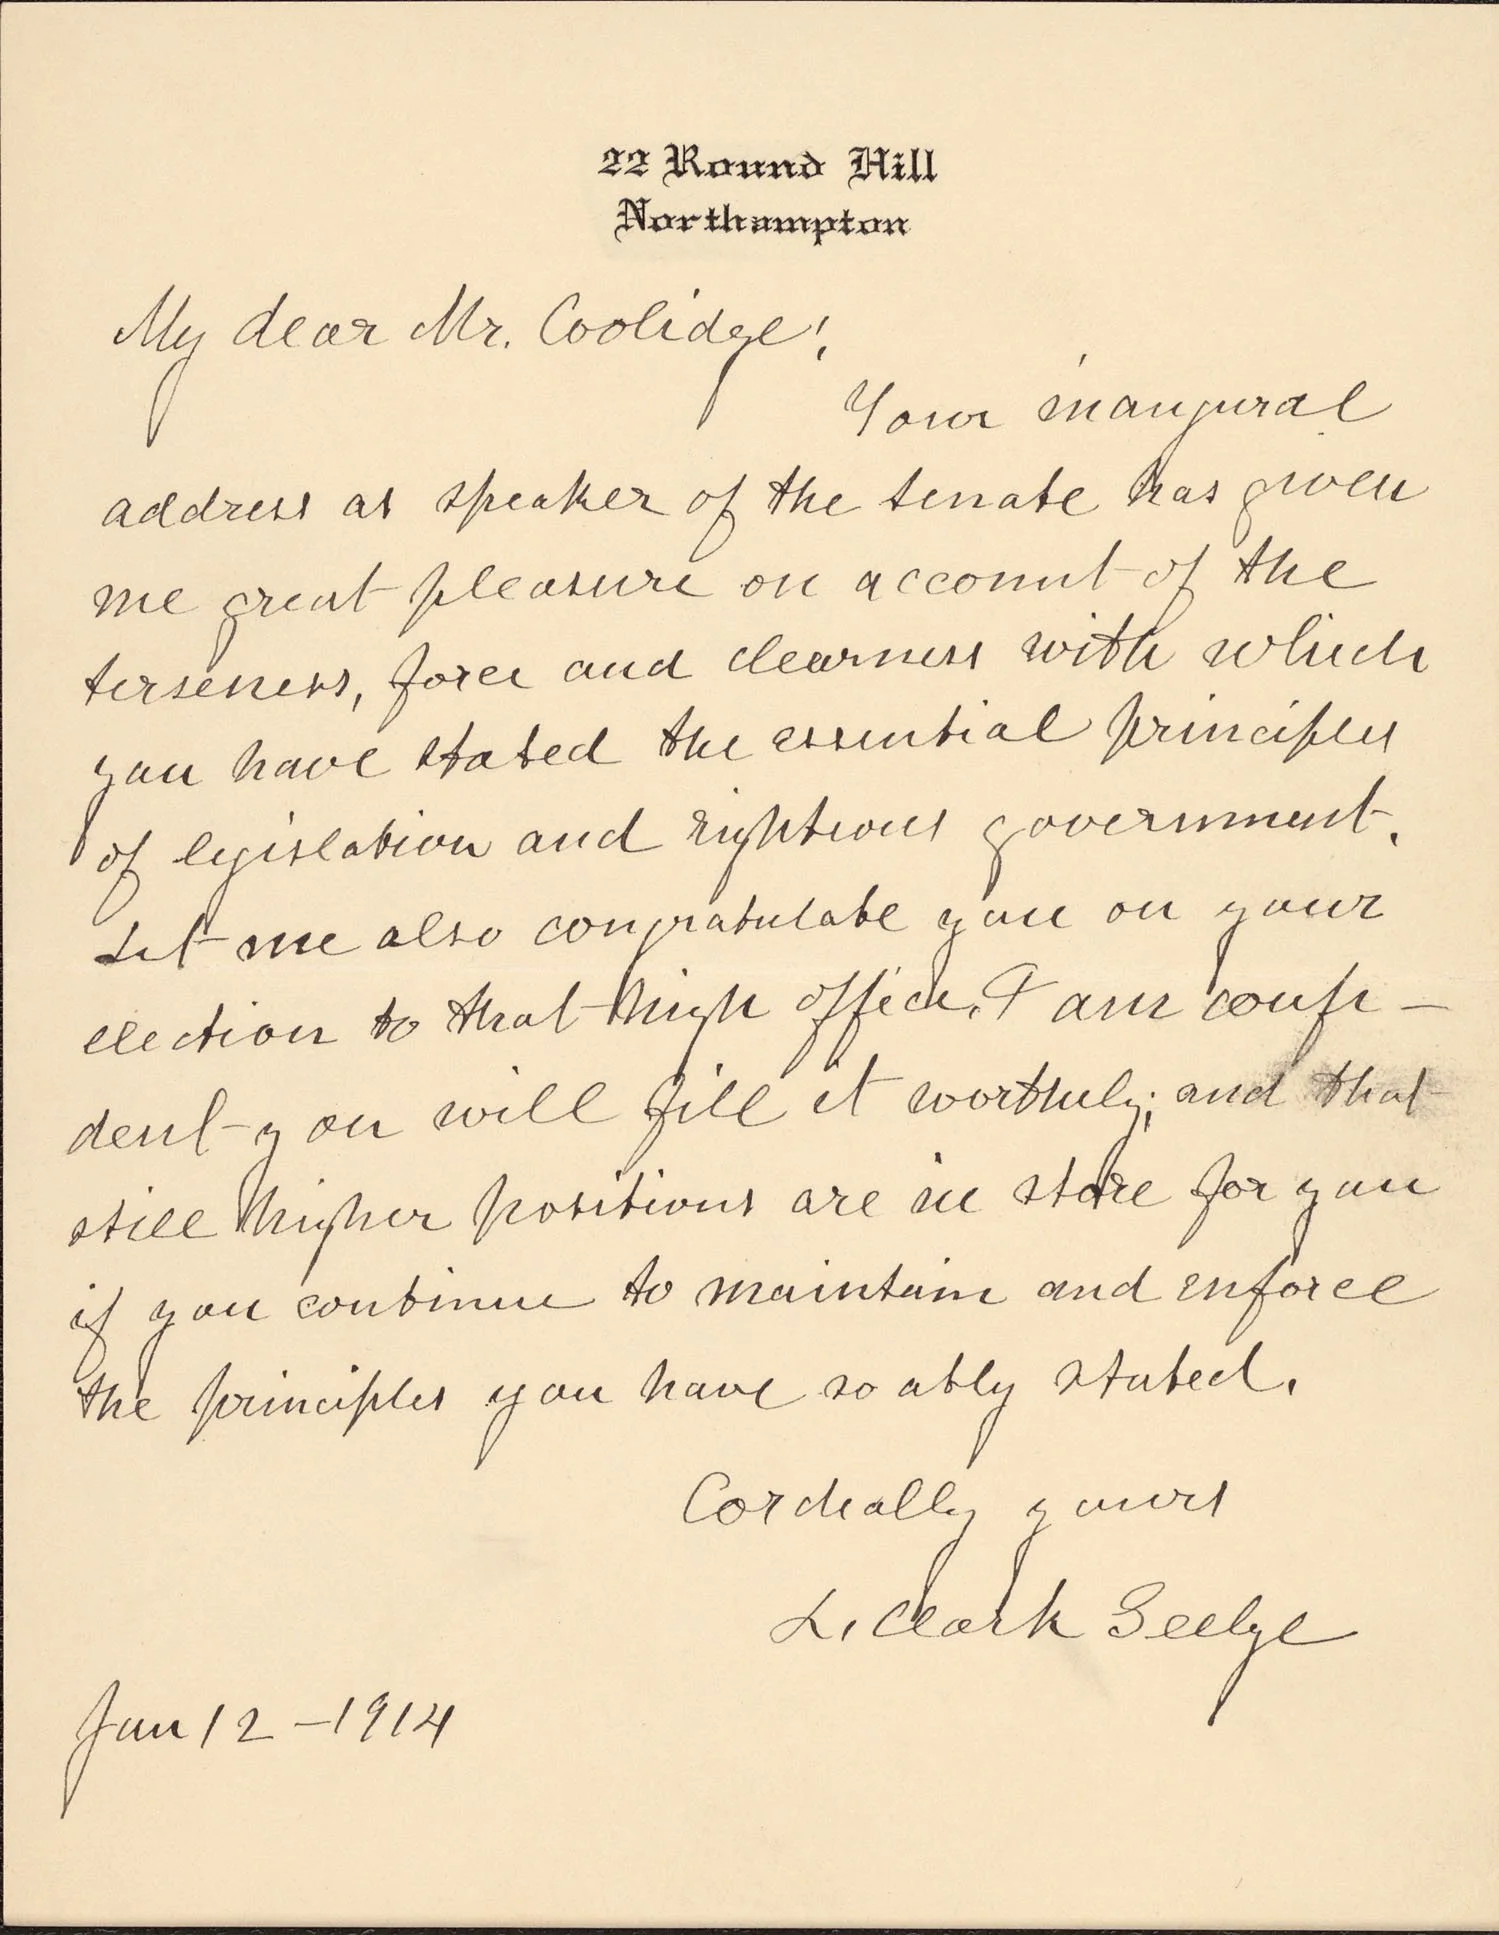 22 Round Hill
Northampton
My dear Mr. Coolidge;
Your inaugural
address as speaker of the senate has given
me great pleasure on account of the
terseness, force and clearness with which
you have stated the essential principles
of legislation and righteous government.
Let me also congratulate you on your
election to that high office. I am confi-
dent you will fill it worthily; and that
still higher positions are in store for you
if you continue to maintain and enforce
the principles you have so ably stated.
Cordially yours
L. Clark Seelye
Jan 12 - 1914